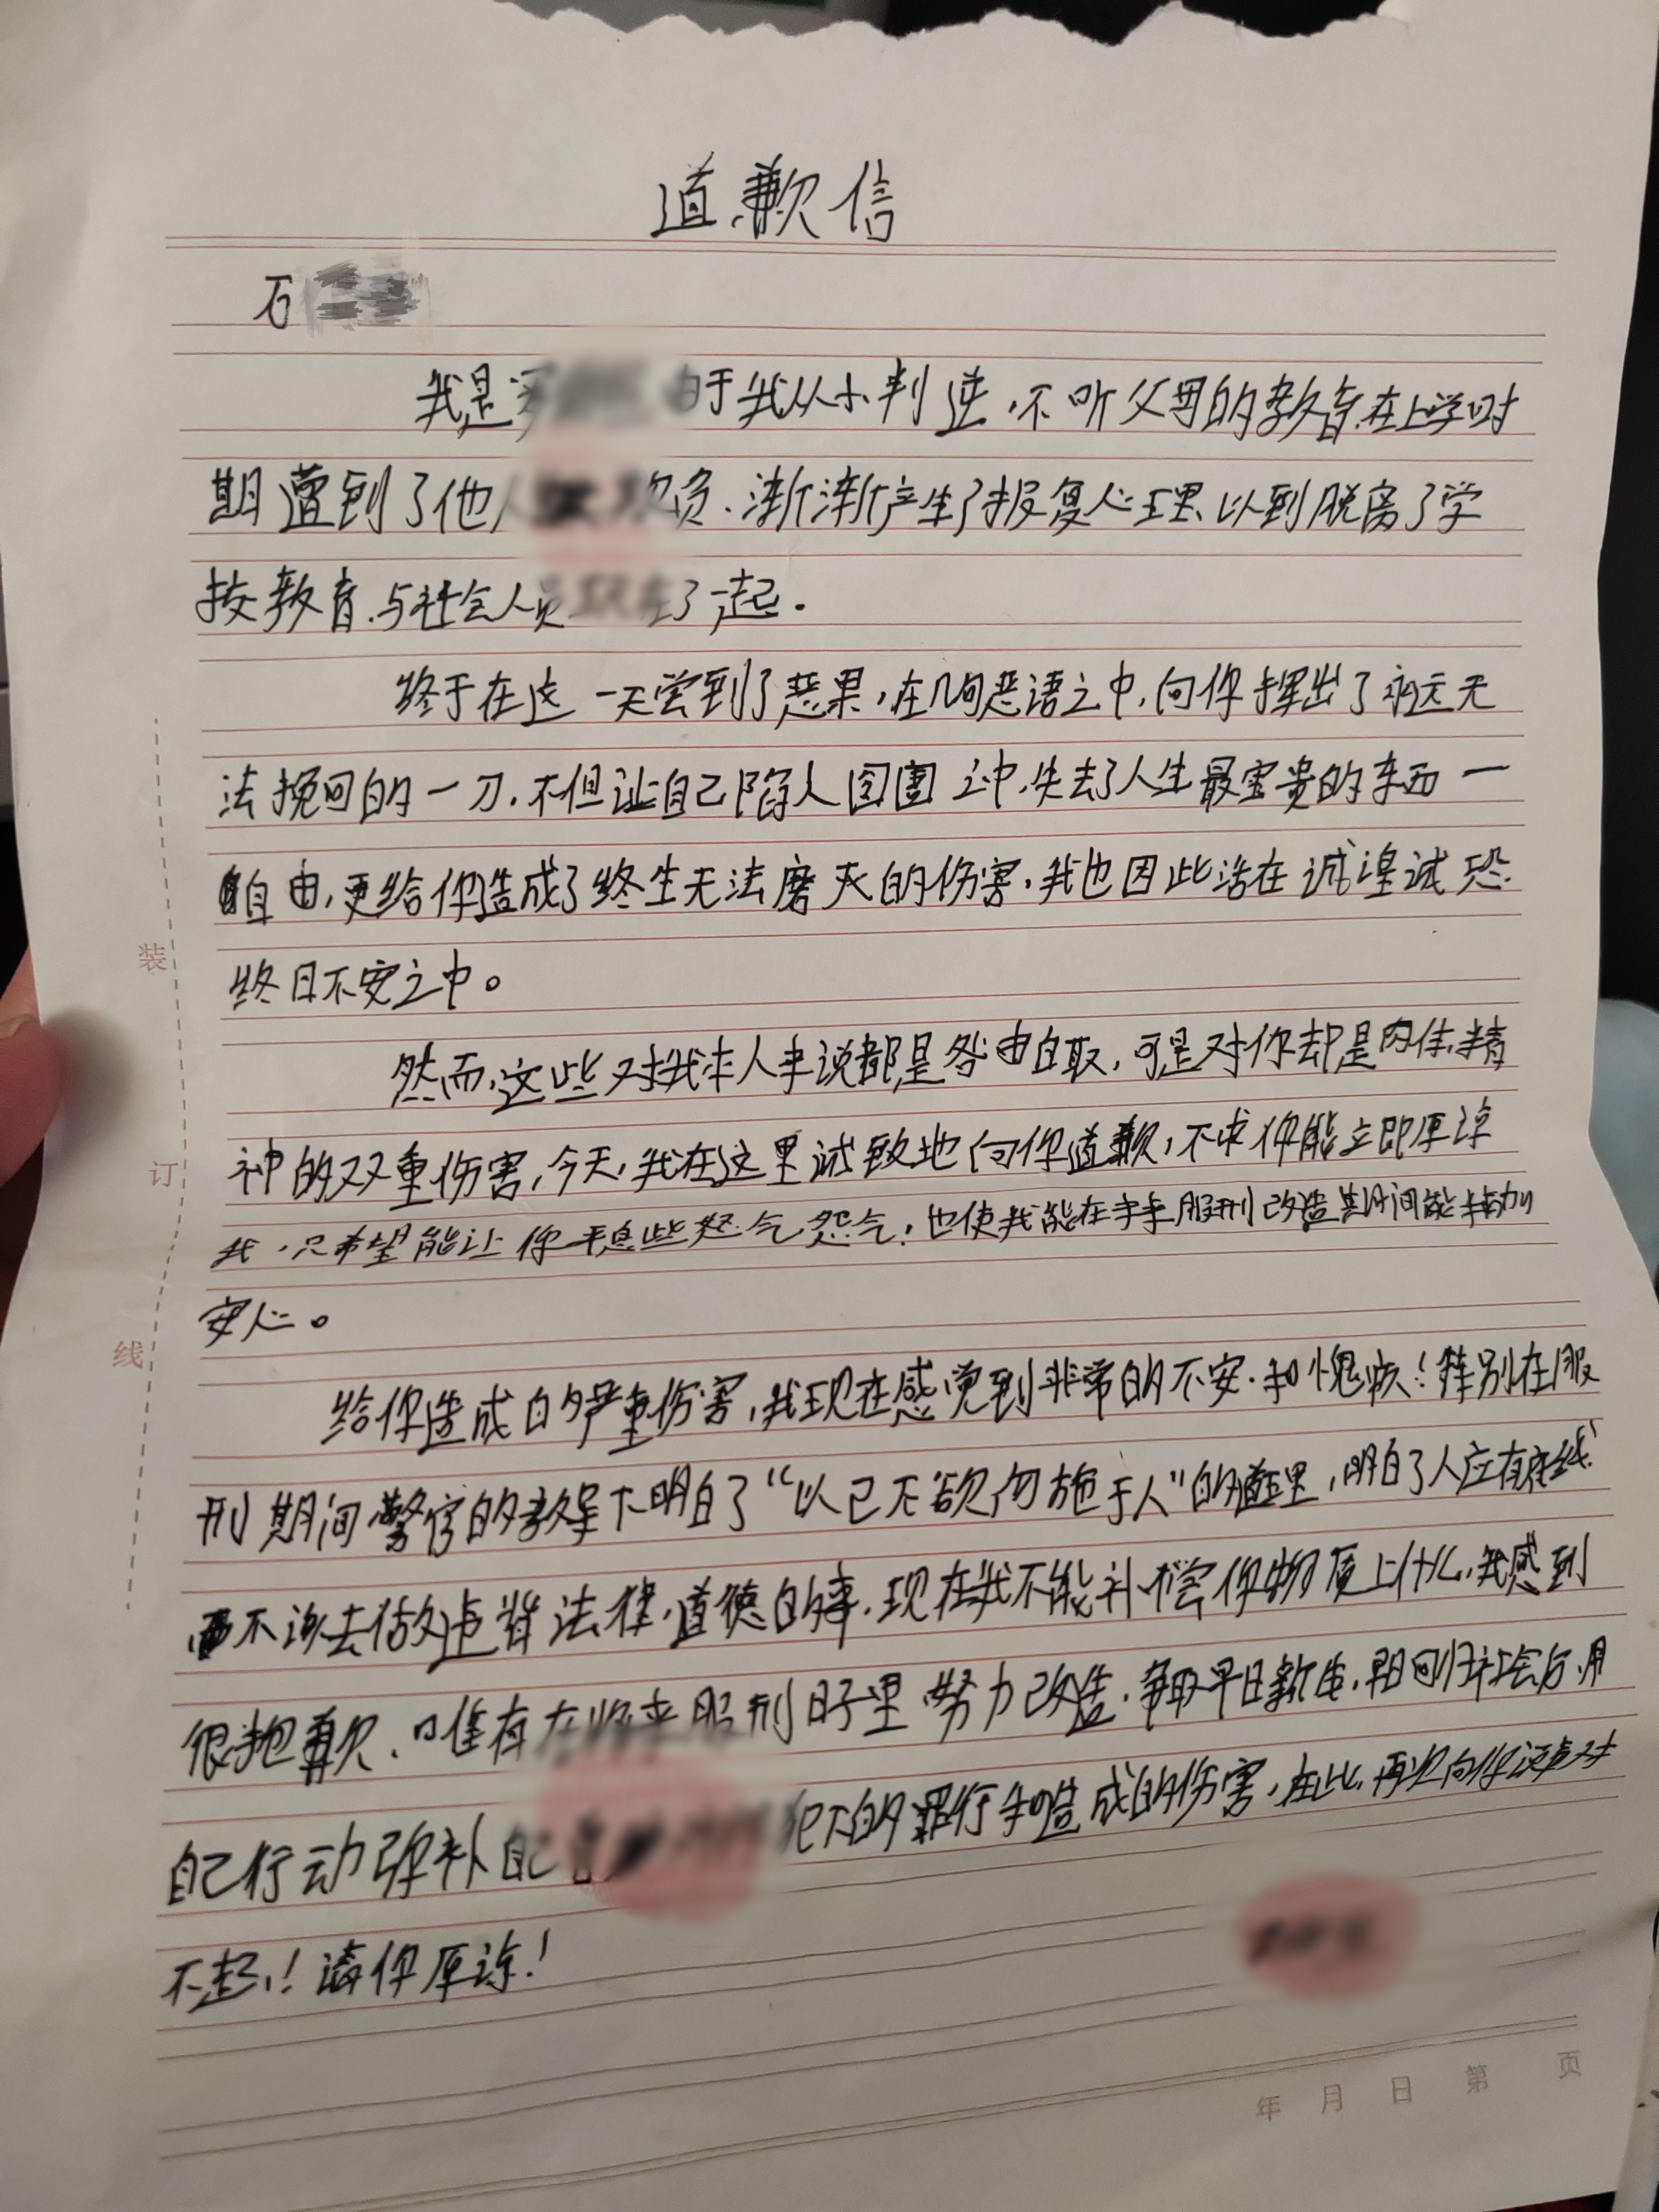 道歉信
石
我是 由于我从小判逆,不听父母的教育.在上学时
期遭到了他人 欺负.渐渐产生了报复心理、以到脱离了学
校教育.与社会人员 了一起.
终于在这一天尝到了恶果,在几句恶语之中,向你挥出了永远无
法挽回的一刀.不但让自己陷入囹圄之中.失去了人生最宝贵的东西一
自由,更给你造成了终生无法磨灭的伤害,我也因此活在诚惶诚恐
终日不安之中。
然而,这些对我本人来说都是咎由自取,可是对你却是肉体.精
神的双重伤害,今天,我在这里诚致地向你道歉,不求你能立即原谅
我,只希望能让你平息些怒气怨气!也使我能在 服刑改造期间能
安心。
给你造成的严重伤害,我现在感觉到非常的不安.和愧疚!特别在服
刑期间警官的教导下明白了“以己不欲勿施于人”的道理,明白了人应有底线.
不该去做违背法律,道德的事.现在我不能补偿你物质上什么,我感到
很抱歉.唯有在将来服刑日子里努力改造.争取早日新生, 回归社会后.用
自己行动弥补自己 犯下的罪行和造成的伤害,在此.再次向你说声对
不起!请你原谅!
装
订
线
年 月 日 第 页